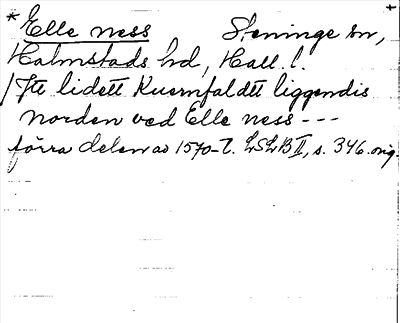 * Elle ness Steninge sn,
Halmstads hd, Hall. l.
/Itt lidett Kuernfaldtt liggendis
norden ved Elle ness ---
förra delen av 1570-t. LSLB II, s. 346. orig.